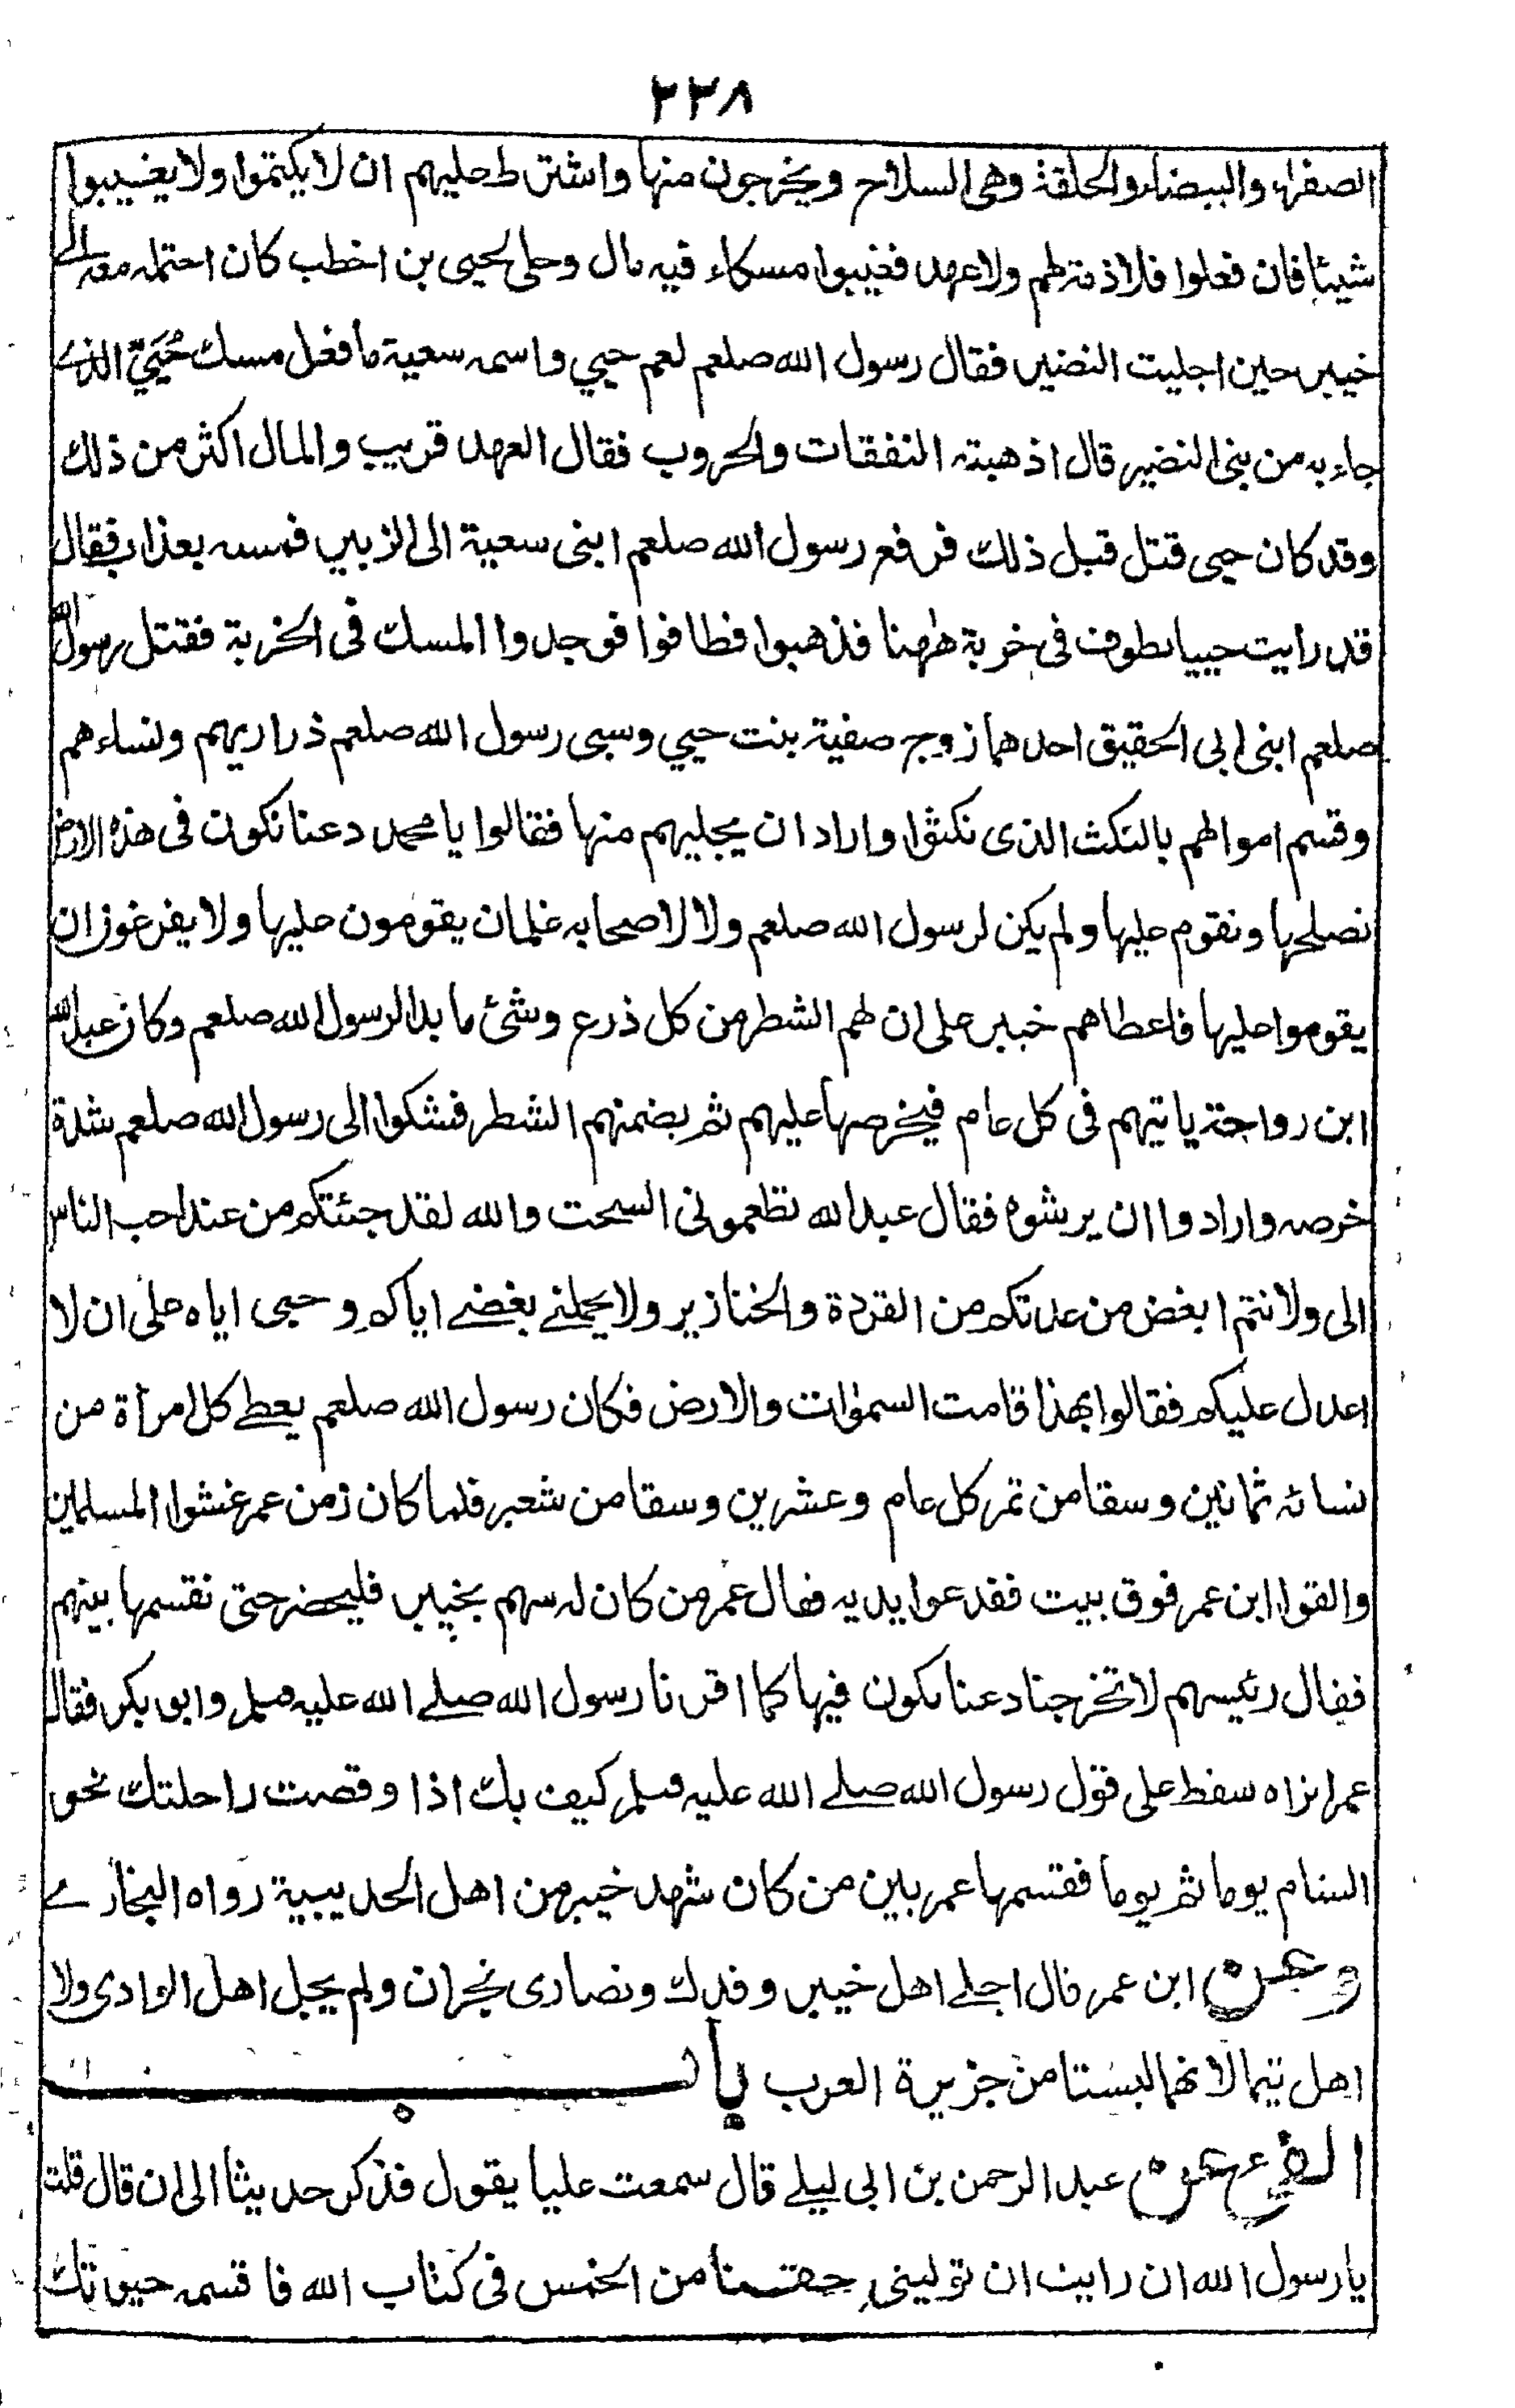 ٢٢٨
الصفراء والبيضاء والحلقة وهى السلاح ويخرجون منها واشترط عليهم ان لا يكتموا ولا يغيبوا
شيئا فان فعلوا فلا ذمة لهم ولا عهد فغيبوا مسكاء فيه مال وحلى لحيى بن اخطب كان احتمله معه الى
خيبر حين اجليت النضير فقال رسول الله صلعم لعم حيي واسمه سعية ما فعل مسك حُيَيّ الذے
جاء به من بنى النضير قال اذهبته النفقات والحروب فقال العهد قريب والمال اكثر من ذلك
وقد كان حيى قتل قبل ذلك فرفع رسول الله صلعم ابنى سعية الى الزبير فمسه بعذاب فقال
قد رايت حييا يطوف فى خربة ههنا فذهبوا فطافوا فوجدوا المسك فى الخربة فقتل رسول الله
صلعم ابنى ابى الحقيق احدهما زوج صفية بنت حيي وسبى رسول الله صلعم ذراريهم ونساءهم
وقسم اموالهم بالنكث الذى نكثوا واراد ان يجليهم منها فقالوا يا محمد دعنا نكون فى هذه الارض
نصلحها ونقوم عليها ولم يكن لرسول الله صلعم ولا لاصحابه غلمان يقومون عليها ولا يفرغون ان
يقوموا عليها فاعطاهم خيبر على ان لهم الشطر من كل ذرع وشئ ما بدا لرسول الله صلعم وكان عبد الله
ابن رواحة ياتيهم فى كل عام فيخرصها عليهم ثم يضمنهم الشطر فشكوا الى رسول الله صلعم شدة
خرصه وارادوا ان يرشوه فقال عبد الله تطعمونى السحت والله لقد جئتكم من عند احب الناس
الى ولانتم ابغض من عدتكم من القردة والخنازير ولا يحملنے بغضے اياكم وحبى اياه على ان لا
اعدل عليكم فقالوا بهذا قامت السموات والارض فكان رسول الله صلعم يعطے كل امرأة من
نسائه ثمانين وسقا من تمر كل عام وعشرين وسقا من شعير فلما كان زمن عمر غشوا المسلمين
والقوا ابن عمر فوق بيت ففدعوا يديه فقال عمر من كان له سهم بخيبر فليحضر حتى نقسمها بينهم
فقال رئيسهم لا تخرجنا دعنا نكون فيها كما اقرنا رسول الله صلے الله عليه وسلم وابو بكر فقال
عمر انراه سقط على قول رسول الله صلے الله عليه وسلم كيف بك اذا وقصت راحلتك نحو
السنام يوما ثم يوما فقسمها عمر بين من كان شهد خيبر من اهل الحديبية رواه البخارے
وعن ابن عمر قال اجلے اهل خيبر وفدك ونصارى نجران ولم يجل اهل الوادى ولا
اهل تيما لانهما ليستا من جزيرة العرب باب
الفئ عن عبد الرحمن بن ابى ليلے قال سمعت عليا يقول فذكر حديثا الى ان قال قلت
يا رسول الله ان رايت ان تولينى حقنا من الخمس فى كتاب الله فاقسمه حيوتك